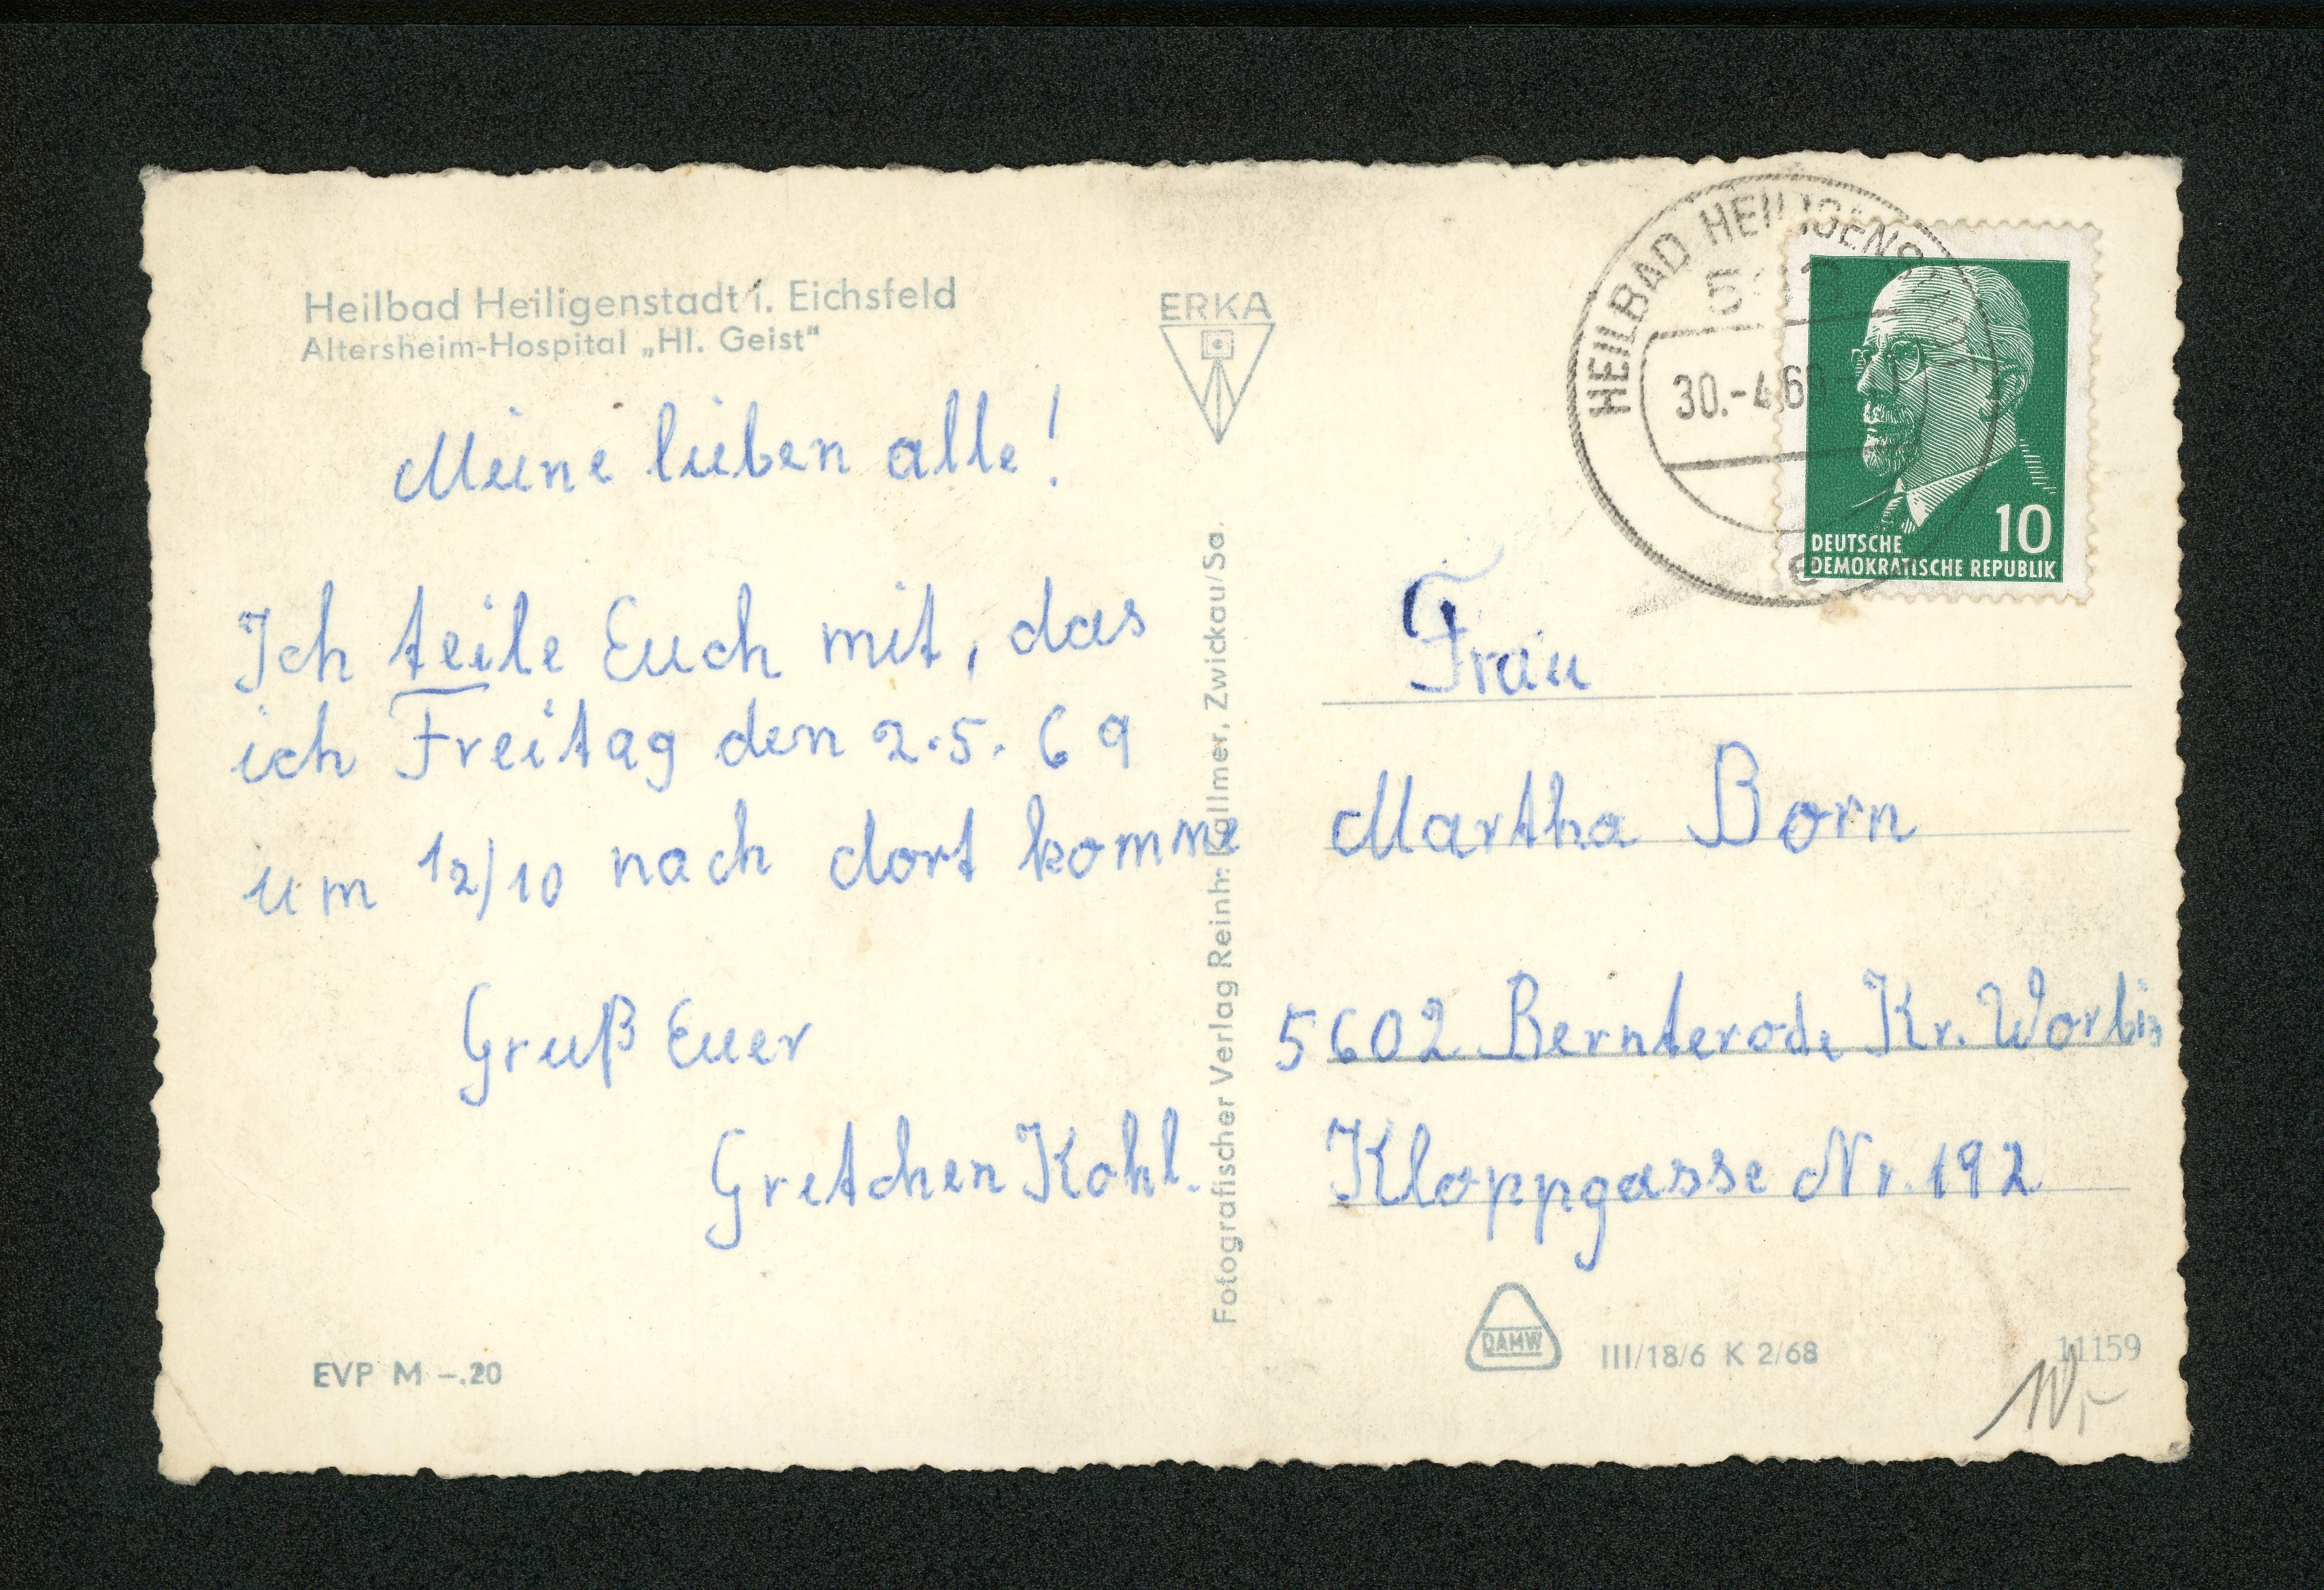 Heilbad Heiligenstadt i. Eichsfeld
Altersheim-Hospital „Hl. Geist“
Meine lieben alle!
Ich teile Euch mit, das
ich Freitag den 2.5.69
um 12/10 nach dort komme
Gruß Euer
Gretchen Kohl.
EVP M –.20
ERKA
Fotografischer Verlag Reinh. Kallmer, Zwickau/Sa.
HEILBAD HEILIGENSTADT
30.-4.69
e
10
DEUTSCHE
DEMOKRATISCHE REPUBLIK
Frau
Martha Born
5602 Bernterode Kr. Worbis
Kloppgasse Nr. 192
DAMW
III/18/6 K 2/68
11159